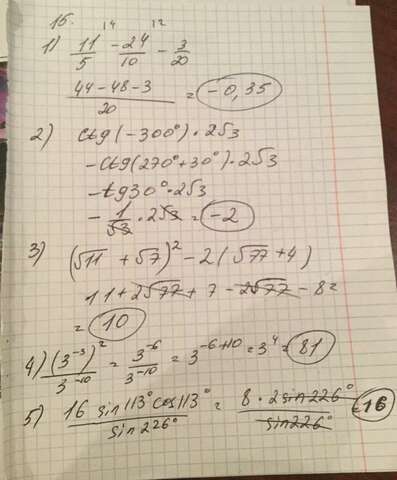 15.
1) 11/5 \4 − 24/10 \2 − 3/20
(44 − 48 − 3)/20 = −0,35
2) ctg(−300°)·2√3
−ctg(270°+30°)·2√3
−tg30°·2√3
−1/√3·2√3 = −2
3) (√11 + √7)² − 2(√77 + 4)
11 + 2√77 + 7 − 2√77 − 8 =
= 10
4) (3⁻³)²/3⁻¹⁰ = 3⁻⁶/3⁻¹⁰ = 3⁻⁶⁺¹⁰ = 3⁴ = 81
5) 16 sin113° cos113°/sin226° = 8·2sin226°/sin226° = 16